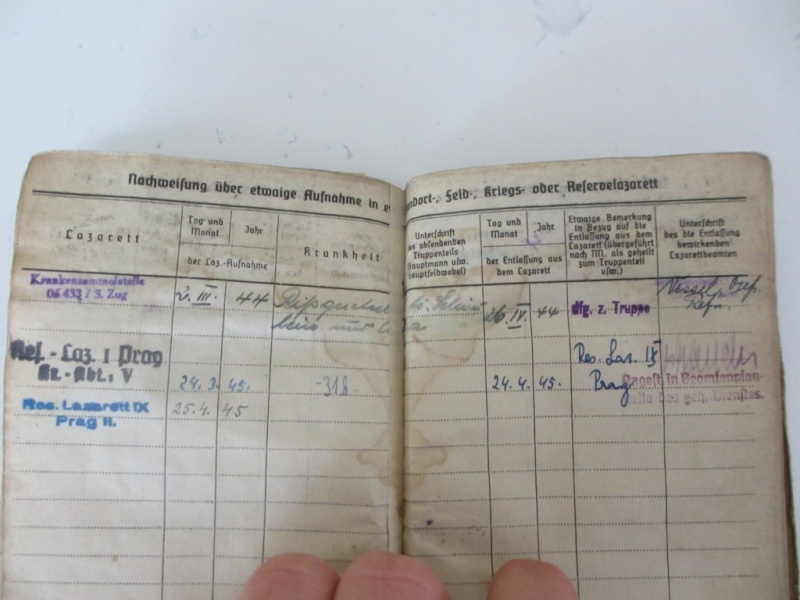 Nachweisung über etwaige Aufnahme in e
andort-, Feld-, Kriegs- oder Reservelazarett
Lazarett
Tag und
Monat
Jahr
der Laz.-Aufnahme
Krankheit
Unterschrift
des absendenden
Truppenteils
(Hauptmann usw.
Hauptfeldwebel)
Tag und
Monat
Jahr
der Entlassung aus
dem Lazarett
Etwaige Bemerkung
in Bezug auf die
Entlassung aus dem
Lazarett (übergeführt
nach NN. als geheilt
zum Truppenteil
usw.)
Unterschrift
des die Entlassung
bewirkenden
Lazarettbeamten
Krankensammelstelle
06 433 / 3. Zug
2. III. 44
und
26 IV. 44
dfg. z. Truppe
Res. - Laz. I Prag
V
24. 3. 45.
-318-
24. 4. 45.
Res. Laz. IX
Prag
Angest. in Beamtenplan-
stelle des geh. Dienstes.
Res. Lazarett IX
Prag II.
25. 4. 45